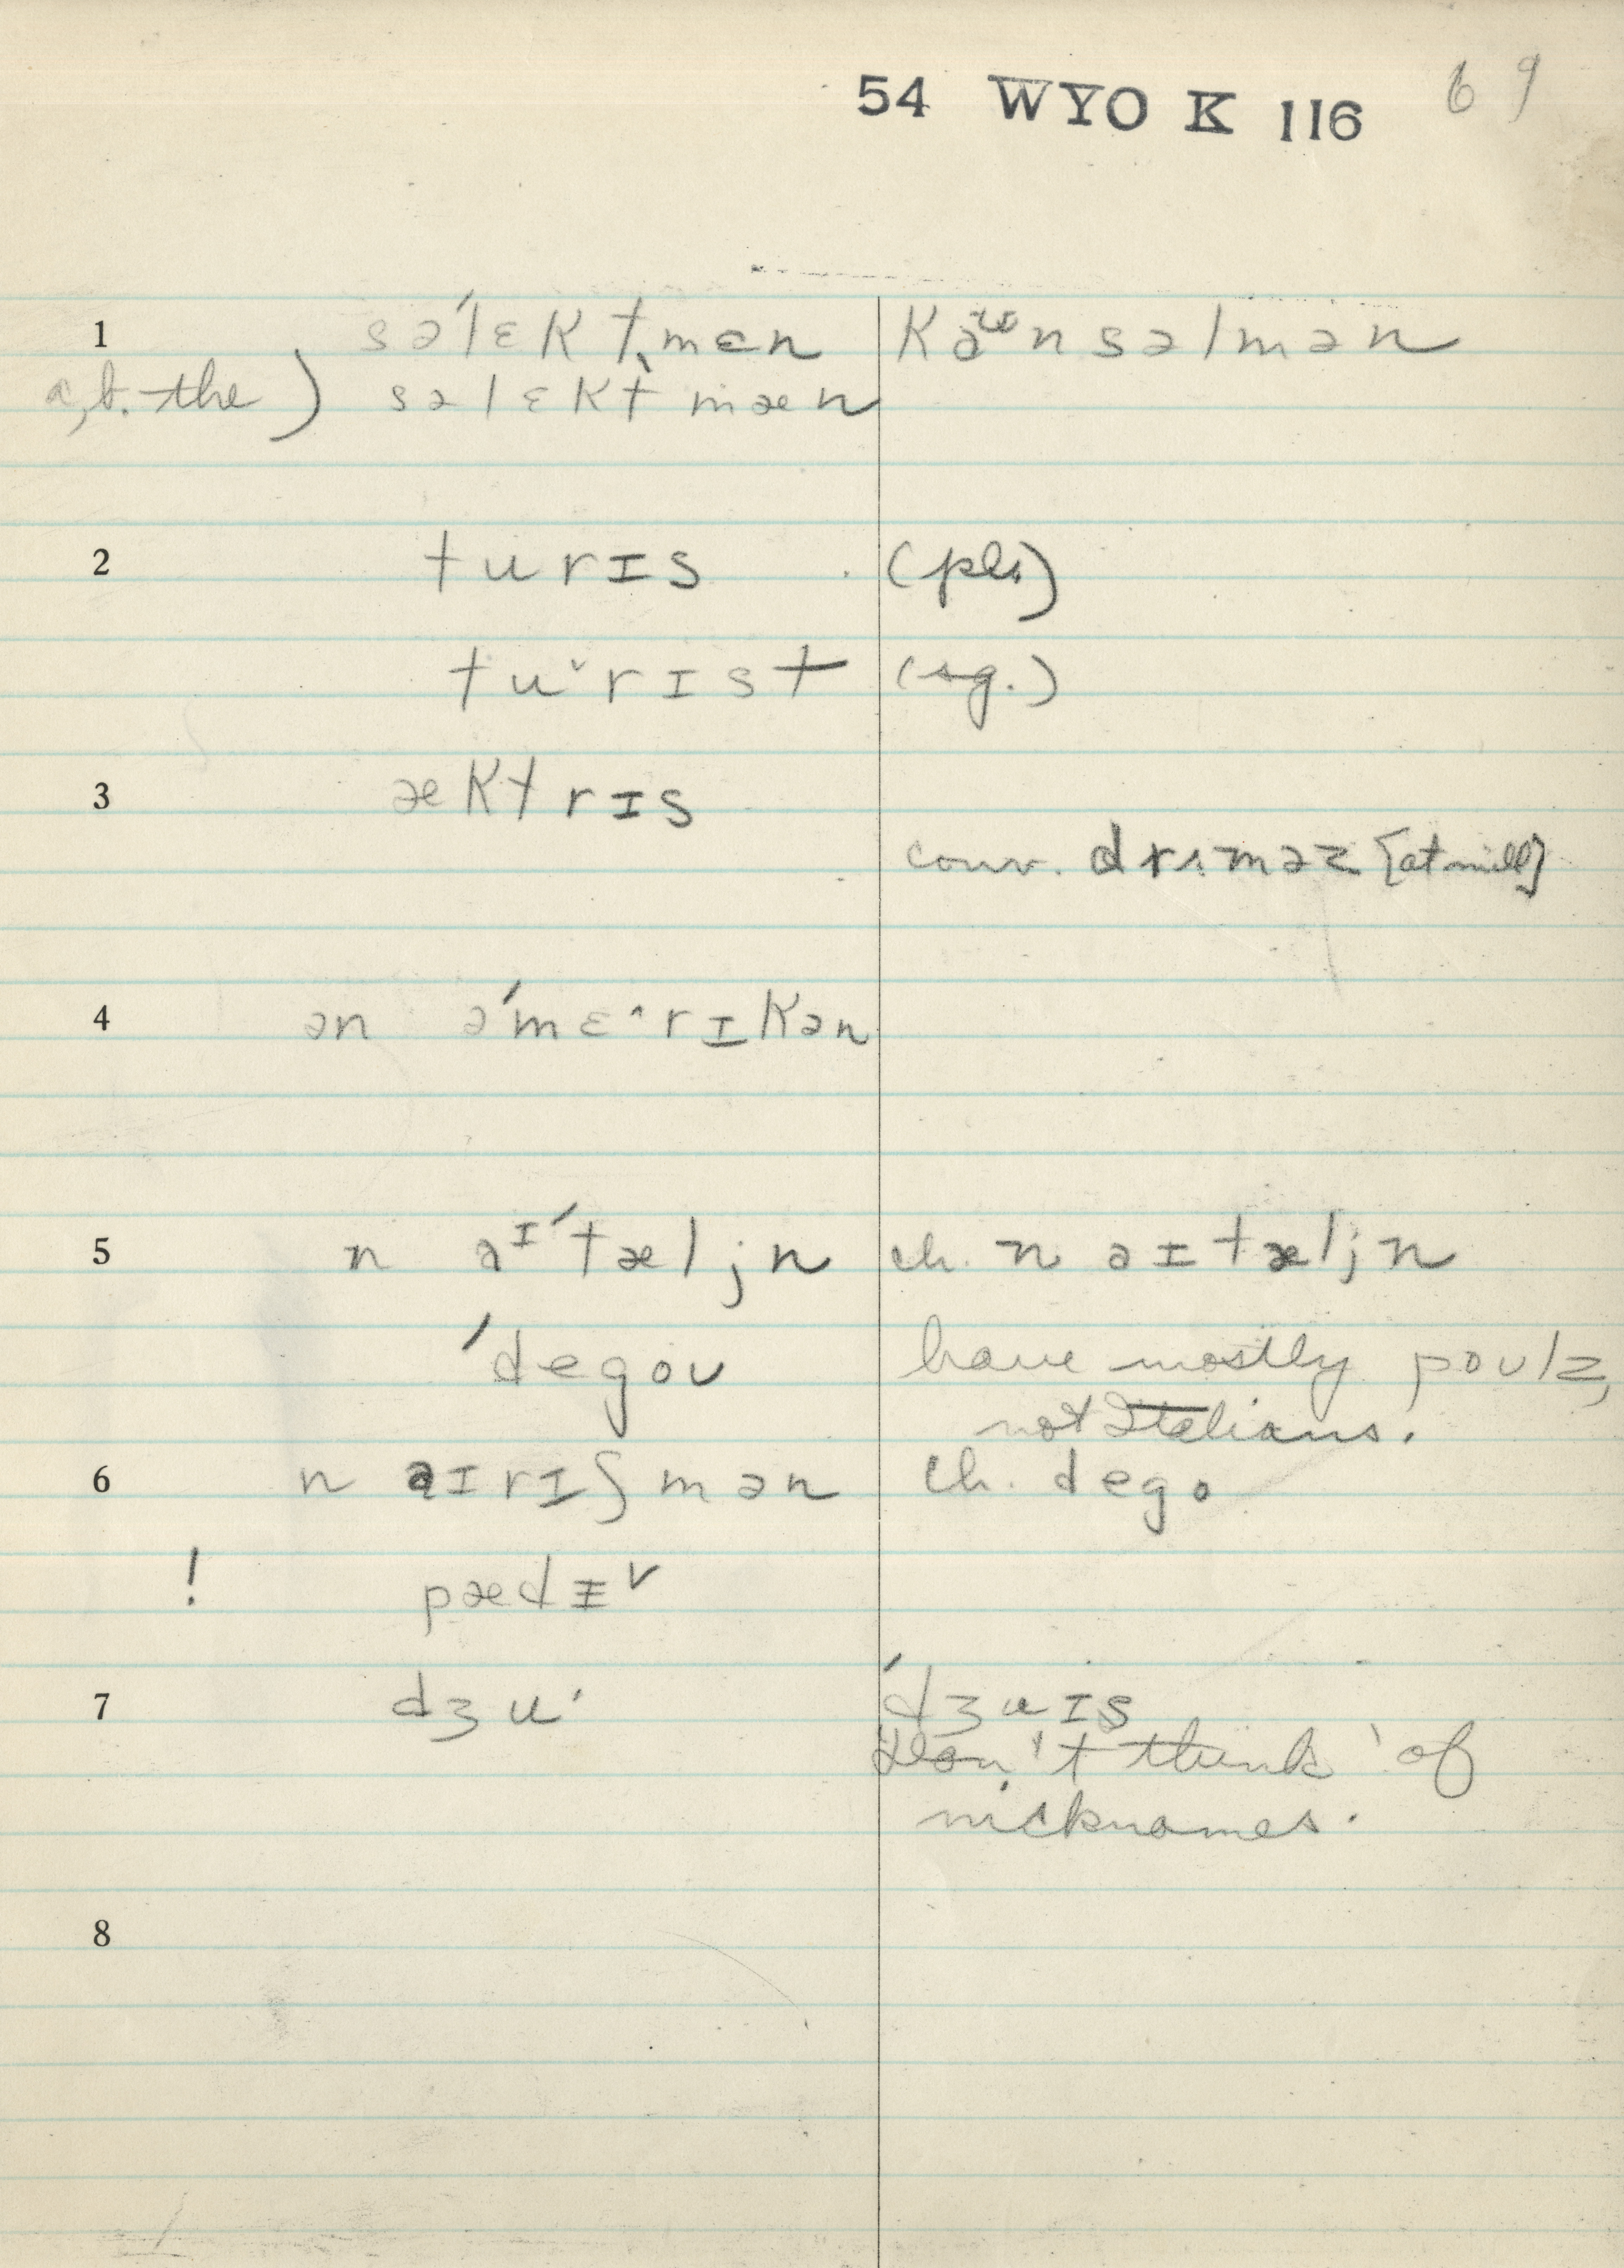 54 WYO K 116 69
1 səˈlɛktˌmɛn kaʊnsəlmən
a, b. the) səlɛkt mæn
2 turɪs (pl.)
tu˅rɪst (sg.)
3 æktrɪs
conv. drɪməz [at mill]
4 ən əˈmɛ˄rɪkən
5 n aɪˈtæljn ch. n aɪtæljn
ˈdegoʊ have mostly poʊlz,
not Italians.
6 n aɪrɪʃmən ch. dego
! pædɪ˅
7 dʒu' ˈdʒuɪs
Don't think of
nicknames.
8